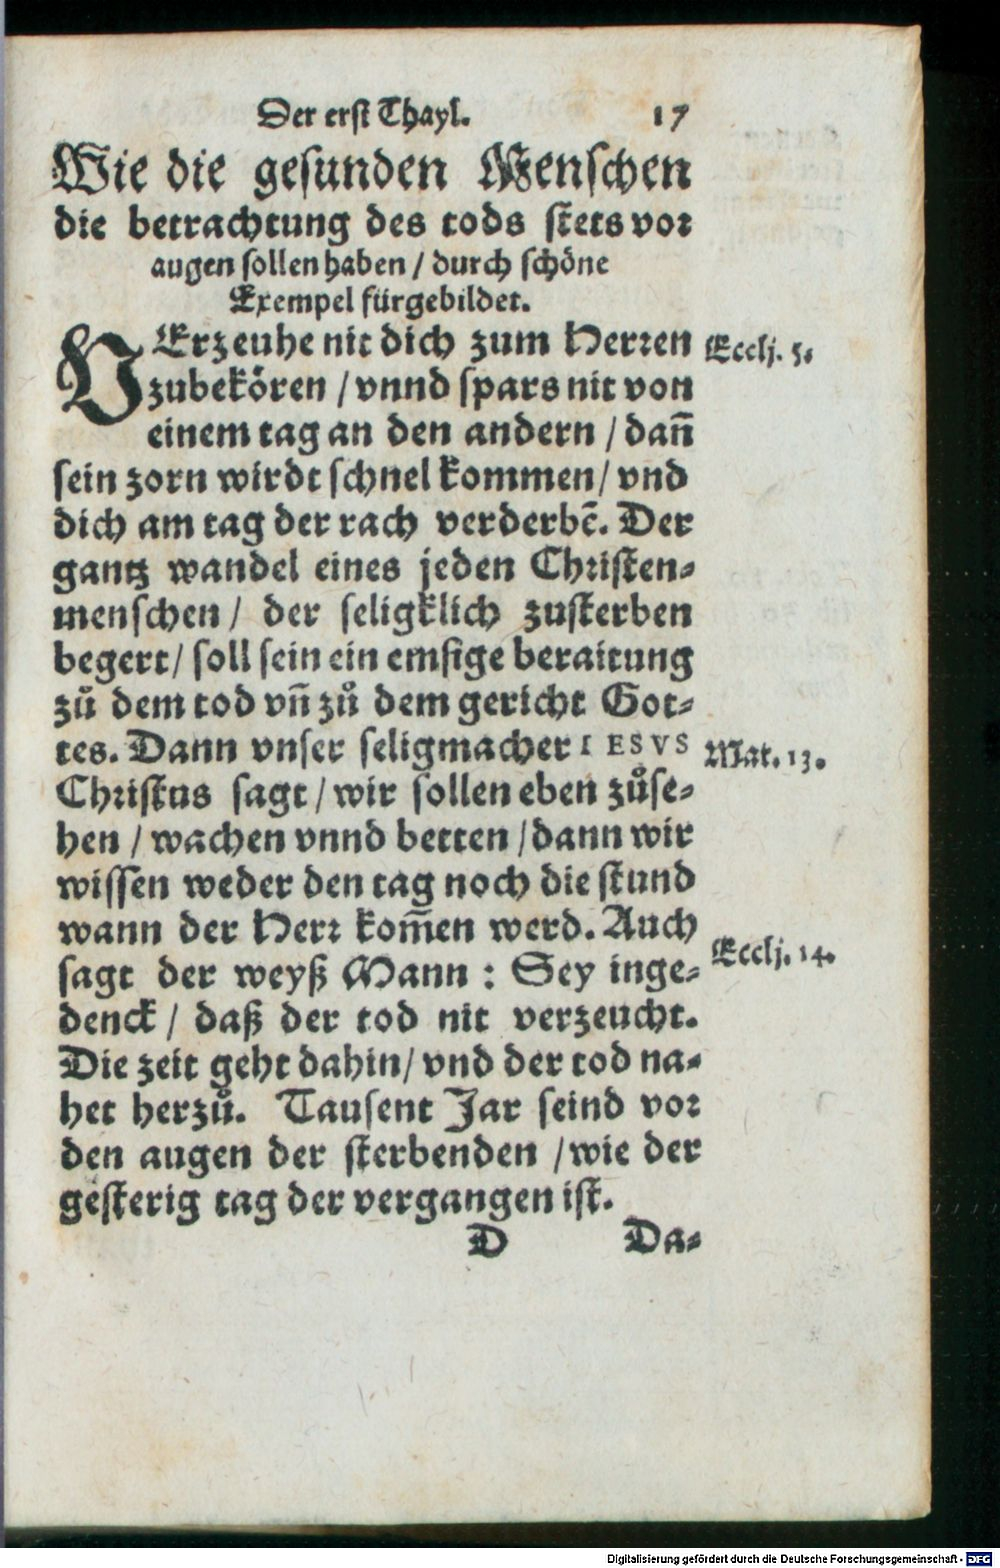 Der erst Thayl. 17
Wie die gesunden Menschen
die betrachtung des tods stets vor
augen sollen haben / durch schöne
Exempel fürgebildet.
VErzeuhe nit dich zum Herren
zubekören / vnnd spars nit von
einem tag an den andern / dañ
sein zorn wirdt schnel kommen / vnd
dich am tag der rach verderbẽ. Der
gantz wandel eines jeden Christen-
menschen / der seligklich zusterben
begert / soll sein ein emsige beraitung
zů dem tod vñ zů dem gericht Got-
tes. Dann vnser seligmacher IESVS
Christus sagt / wir sollen eben zůse-
hen / wachen vnnd betten / dann wir
wissen weder den tag noch die stund
wann der Herr kom̃en werd. Auch
sagt der weyß Mann : Sey inge-
denck / daß der tod nit verzeucht.
Die zeit geht dahin / vnd der tod na-
het herzů. Tausent Jar seind vor
den augen der sterbenden / wie der
gesterig tag der vergangen ist.
D Da-
Ecclj. 5.
Mat. 13.
Ecclj. 14.
Digitalisierung gefördert durch die Deutsche Forschungsgemeinschaft - DFG